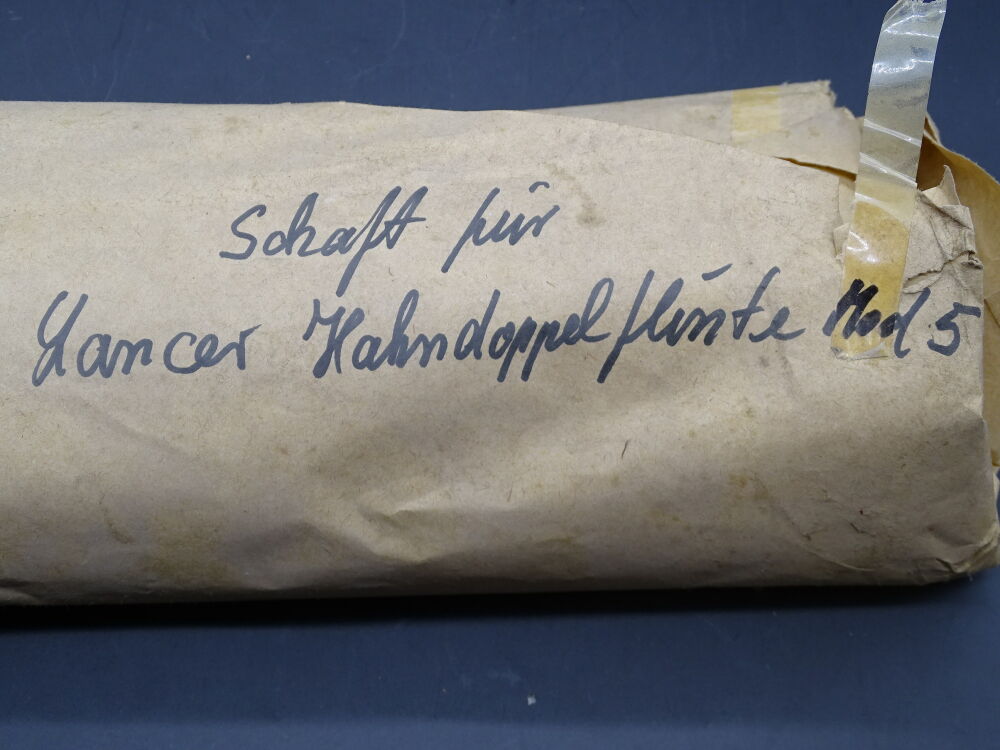 Schaft für
Lancer Hahndoppelflinte Mod 5